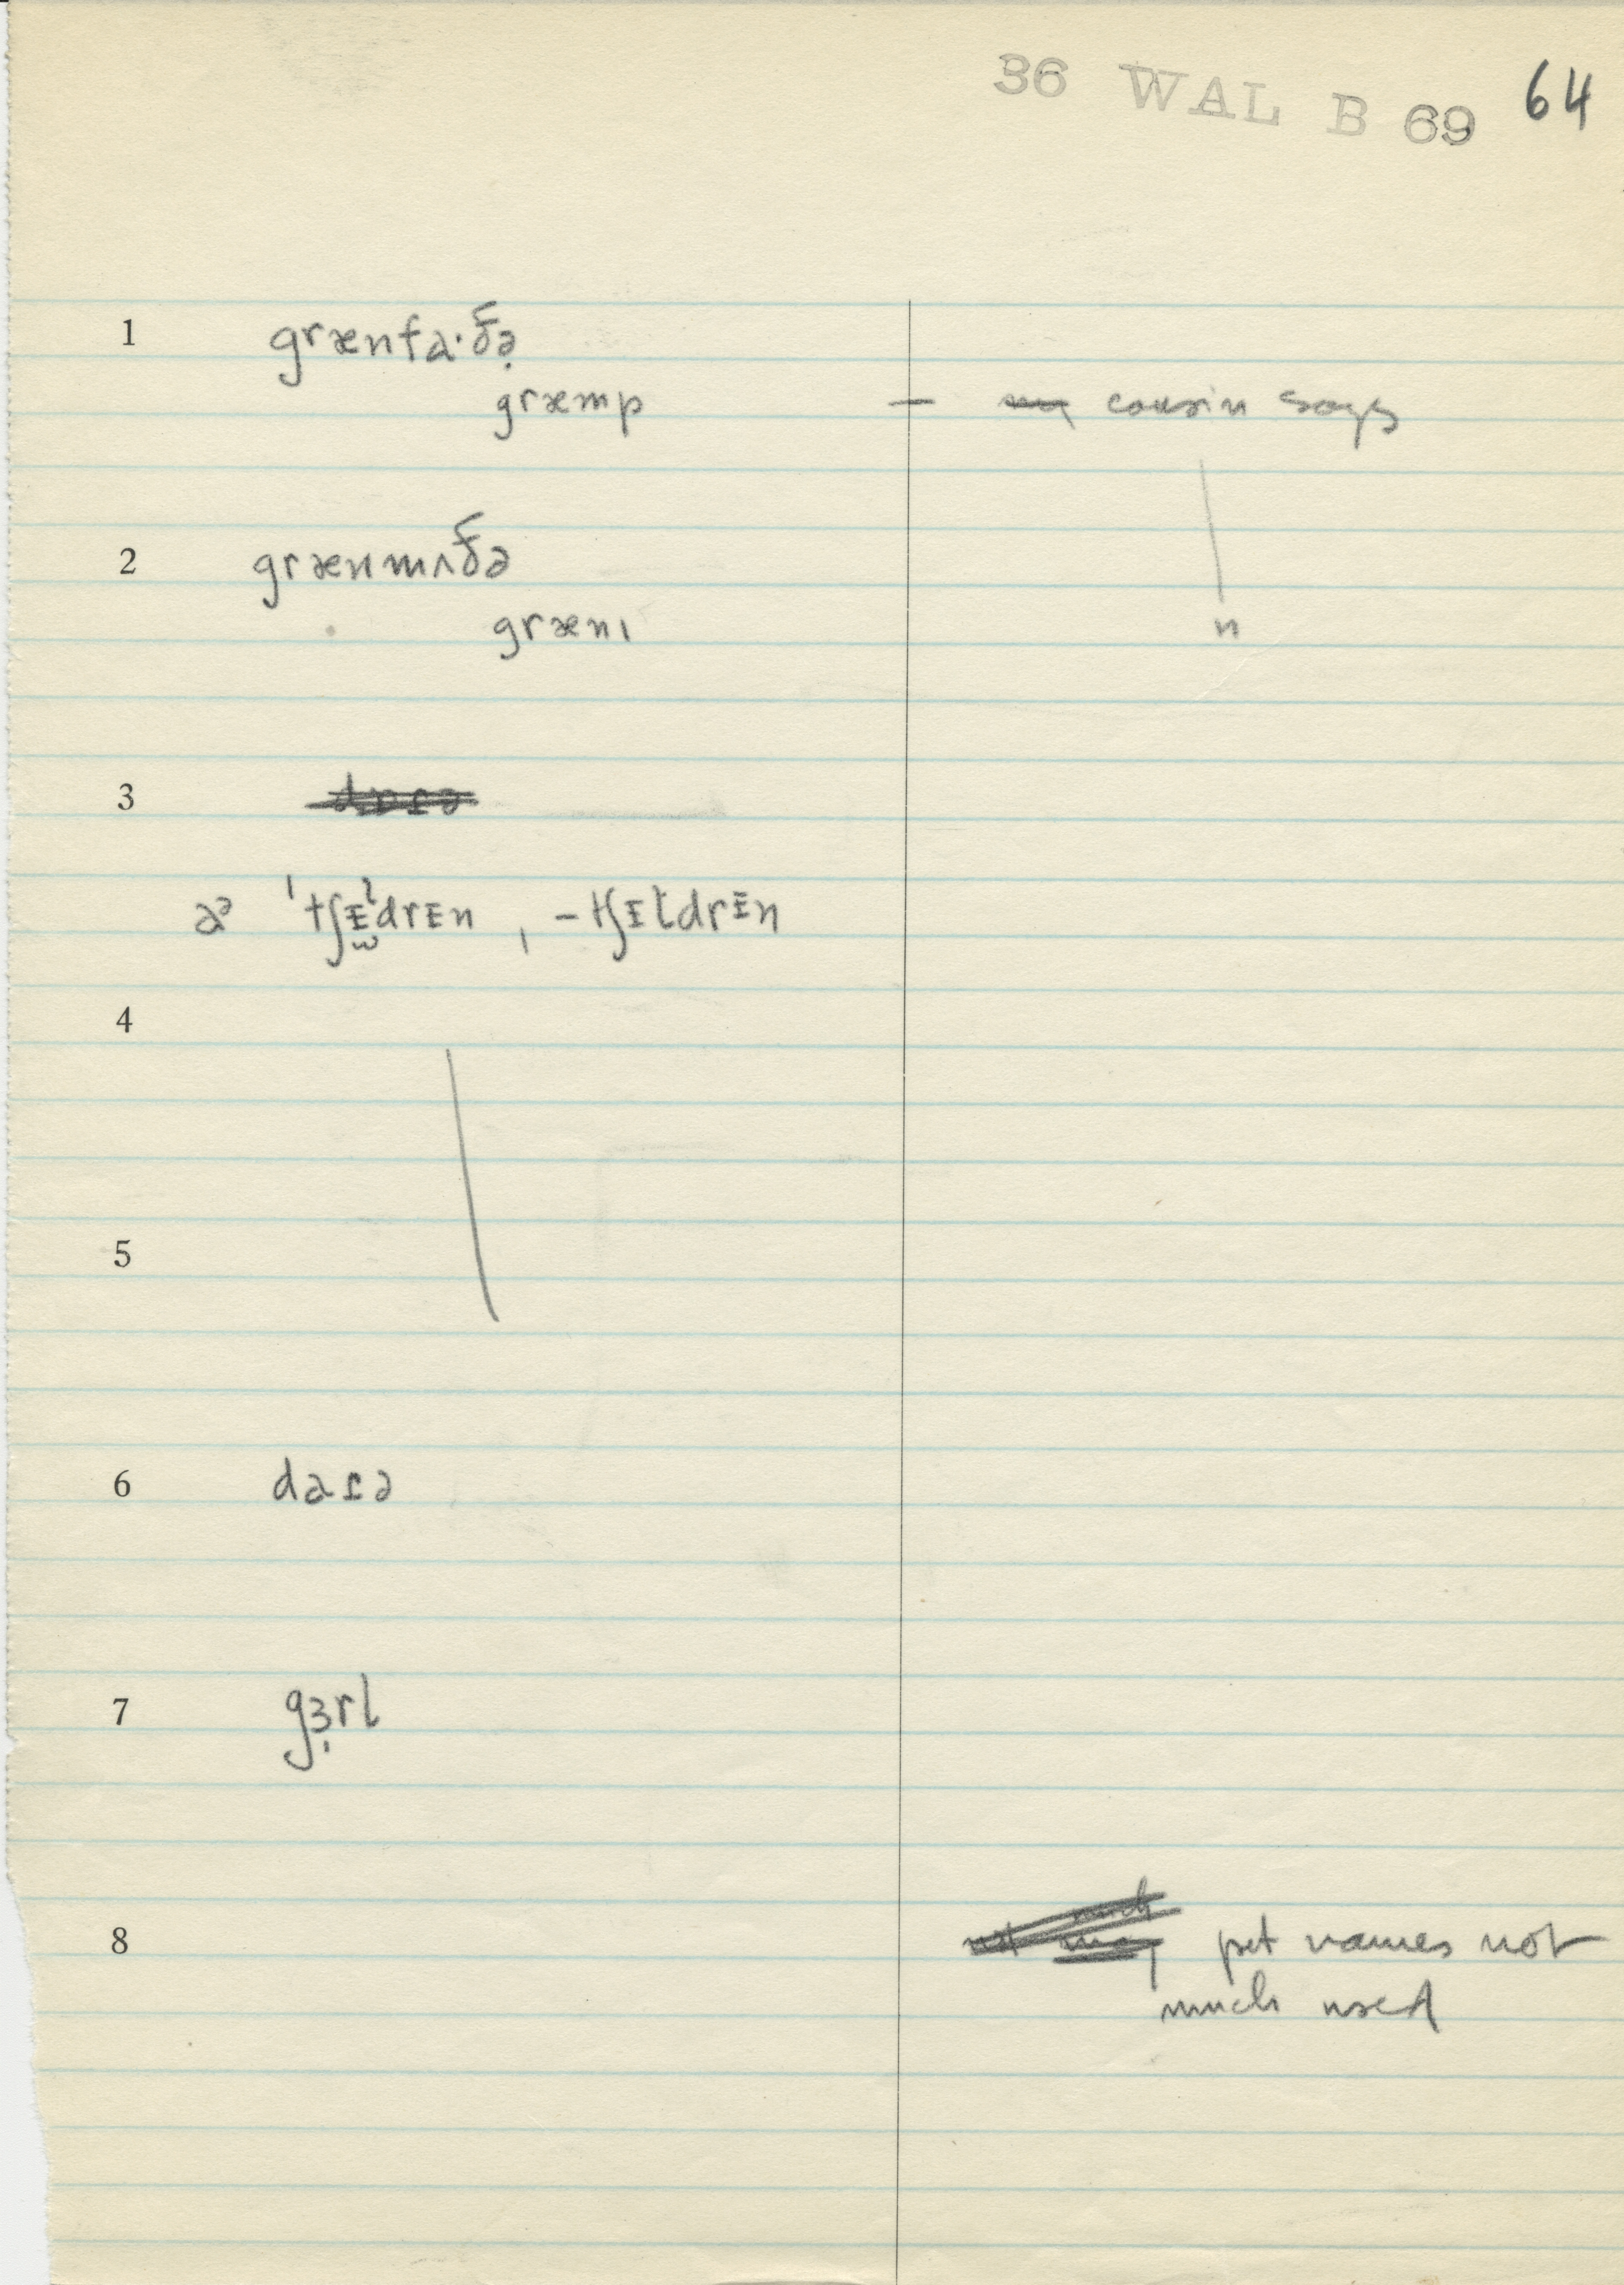 36 WAL B 69 64
1 grænfa·ðə̣
græmp — cousin says
2 grænmʌðə
græni n
3
aᵊ 'tʃᵻldrᵻn, -tʃᵻldrᵻn
4
5
6 daɾə
7 gɜ̣rl
8 pet names not
much used